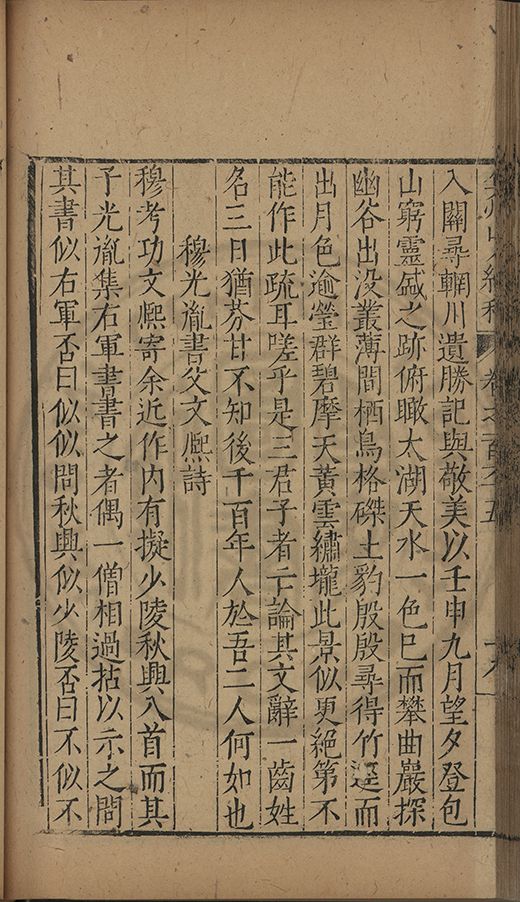 入關尋輞川遺勝記與敬美以壬申九月望夕登包
山窮靈威之跡俯瞰太湖天水一色已而攀曲巖探
幽谷出没叢薄間栖鳥格磔土豹殷殷尋得竹逕而
出月色逾瑩群碧摩天黃雲繡壠此景似更絕第不
能作此疏耳嗟乎是三君子者亡論其文辭一齒姓
名三日猶芬甘不知後千百年人於吾二人何如也
穆光胤書父文熙詩
穆考功文熙寄余近作内有擬少陵秋興八首而其
子光胤集右軍書書之者偶一僧相過拈以示之問
其書似右軍否曰似似問秋興似少陵否曰不似不